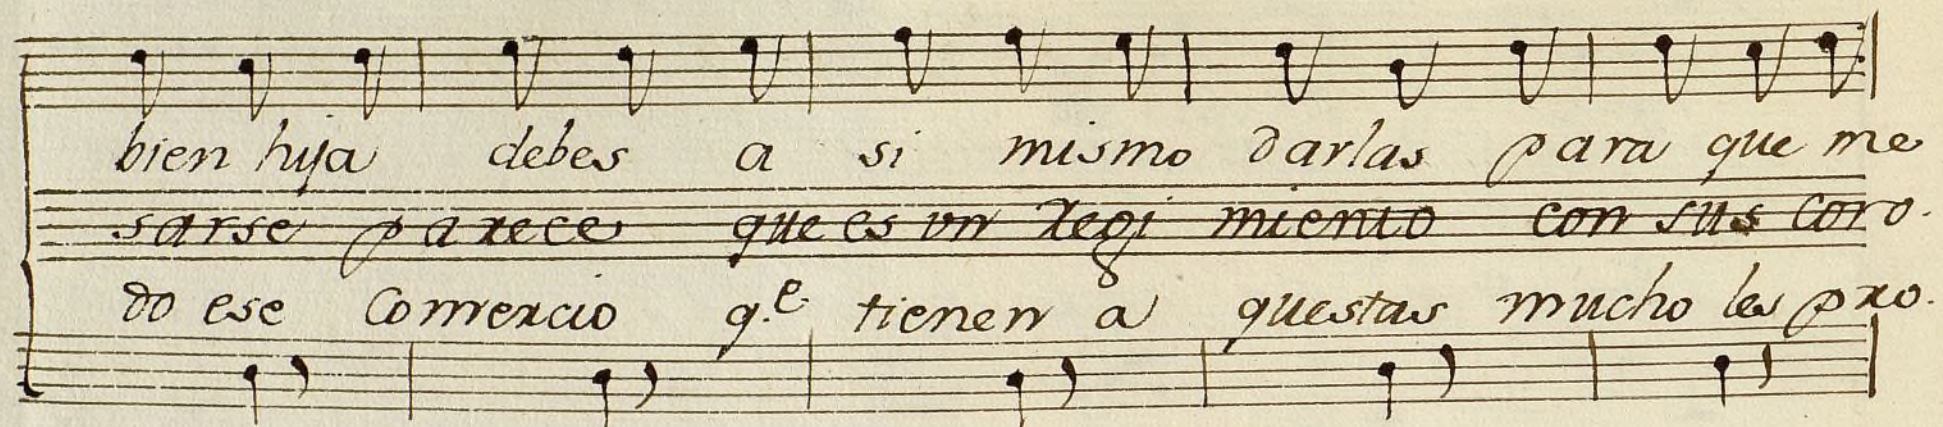 bien hija debes a si mismo darlas para que me
sarse parece que es vn regi miento con sus coro.
do ese Comercio q.e tienen a questas mucho les pro.